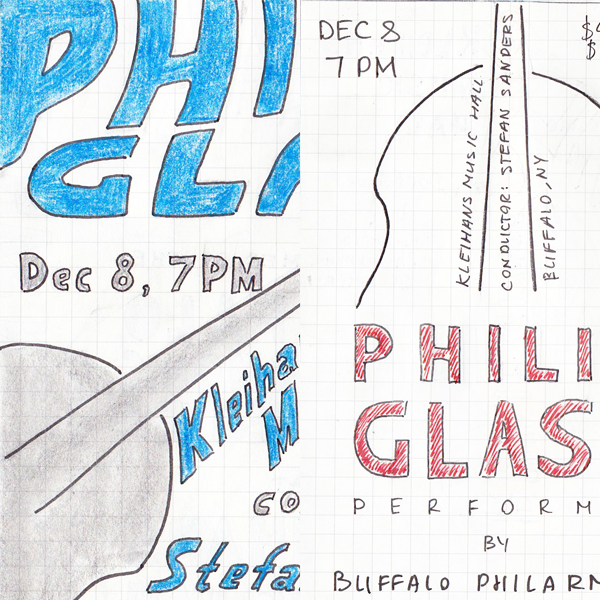 PHI
GLA
Dec 8, 7PM
Kleiha
M
co
Stefa
DEC 8
7 PM
$
$
KLEIHANS MUSIC HALL
CONDUCTOR: STEFAN SANDERS
BUFFALO, NY
PHILI
GLAS
PERFORM
BY
BUFFALO PHILARM